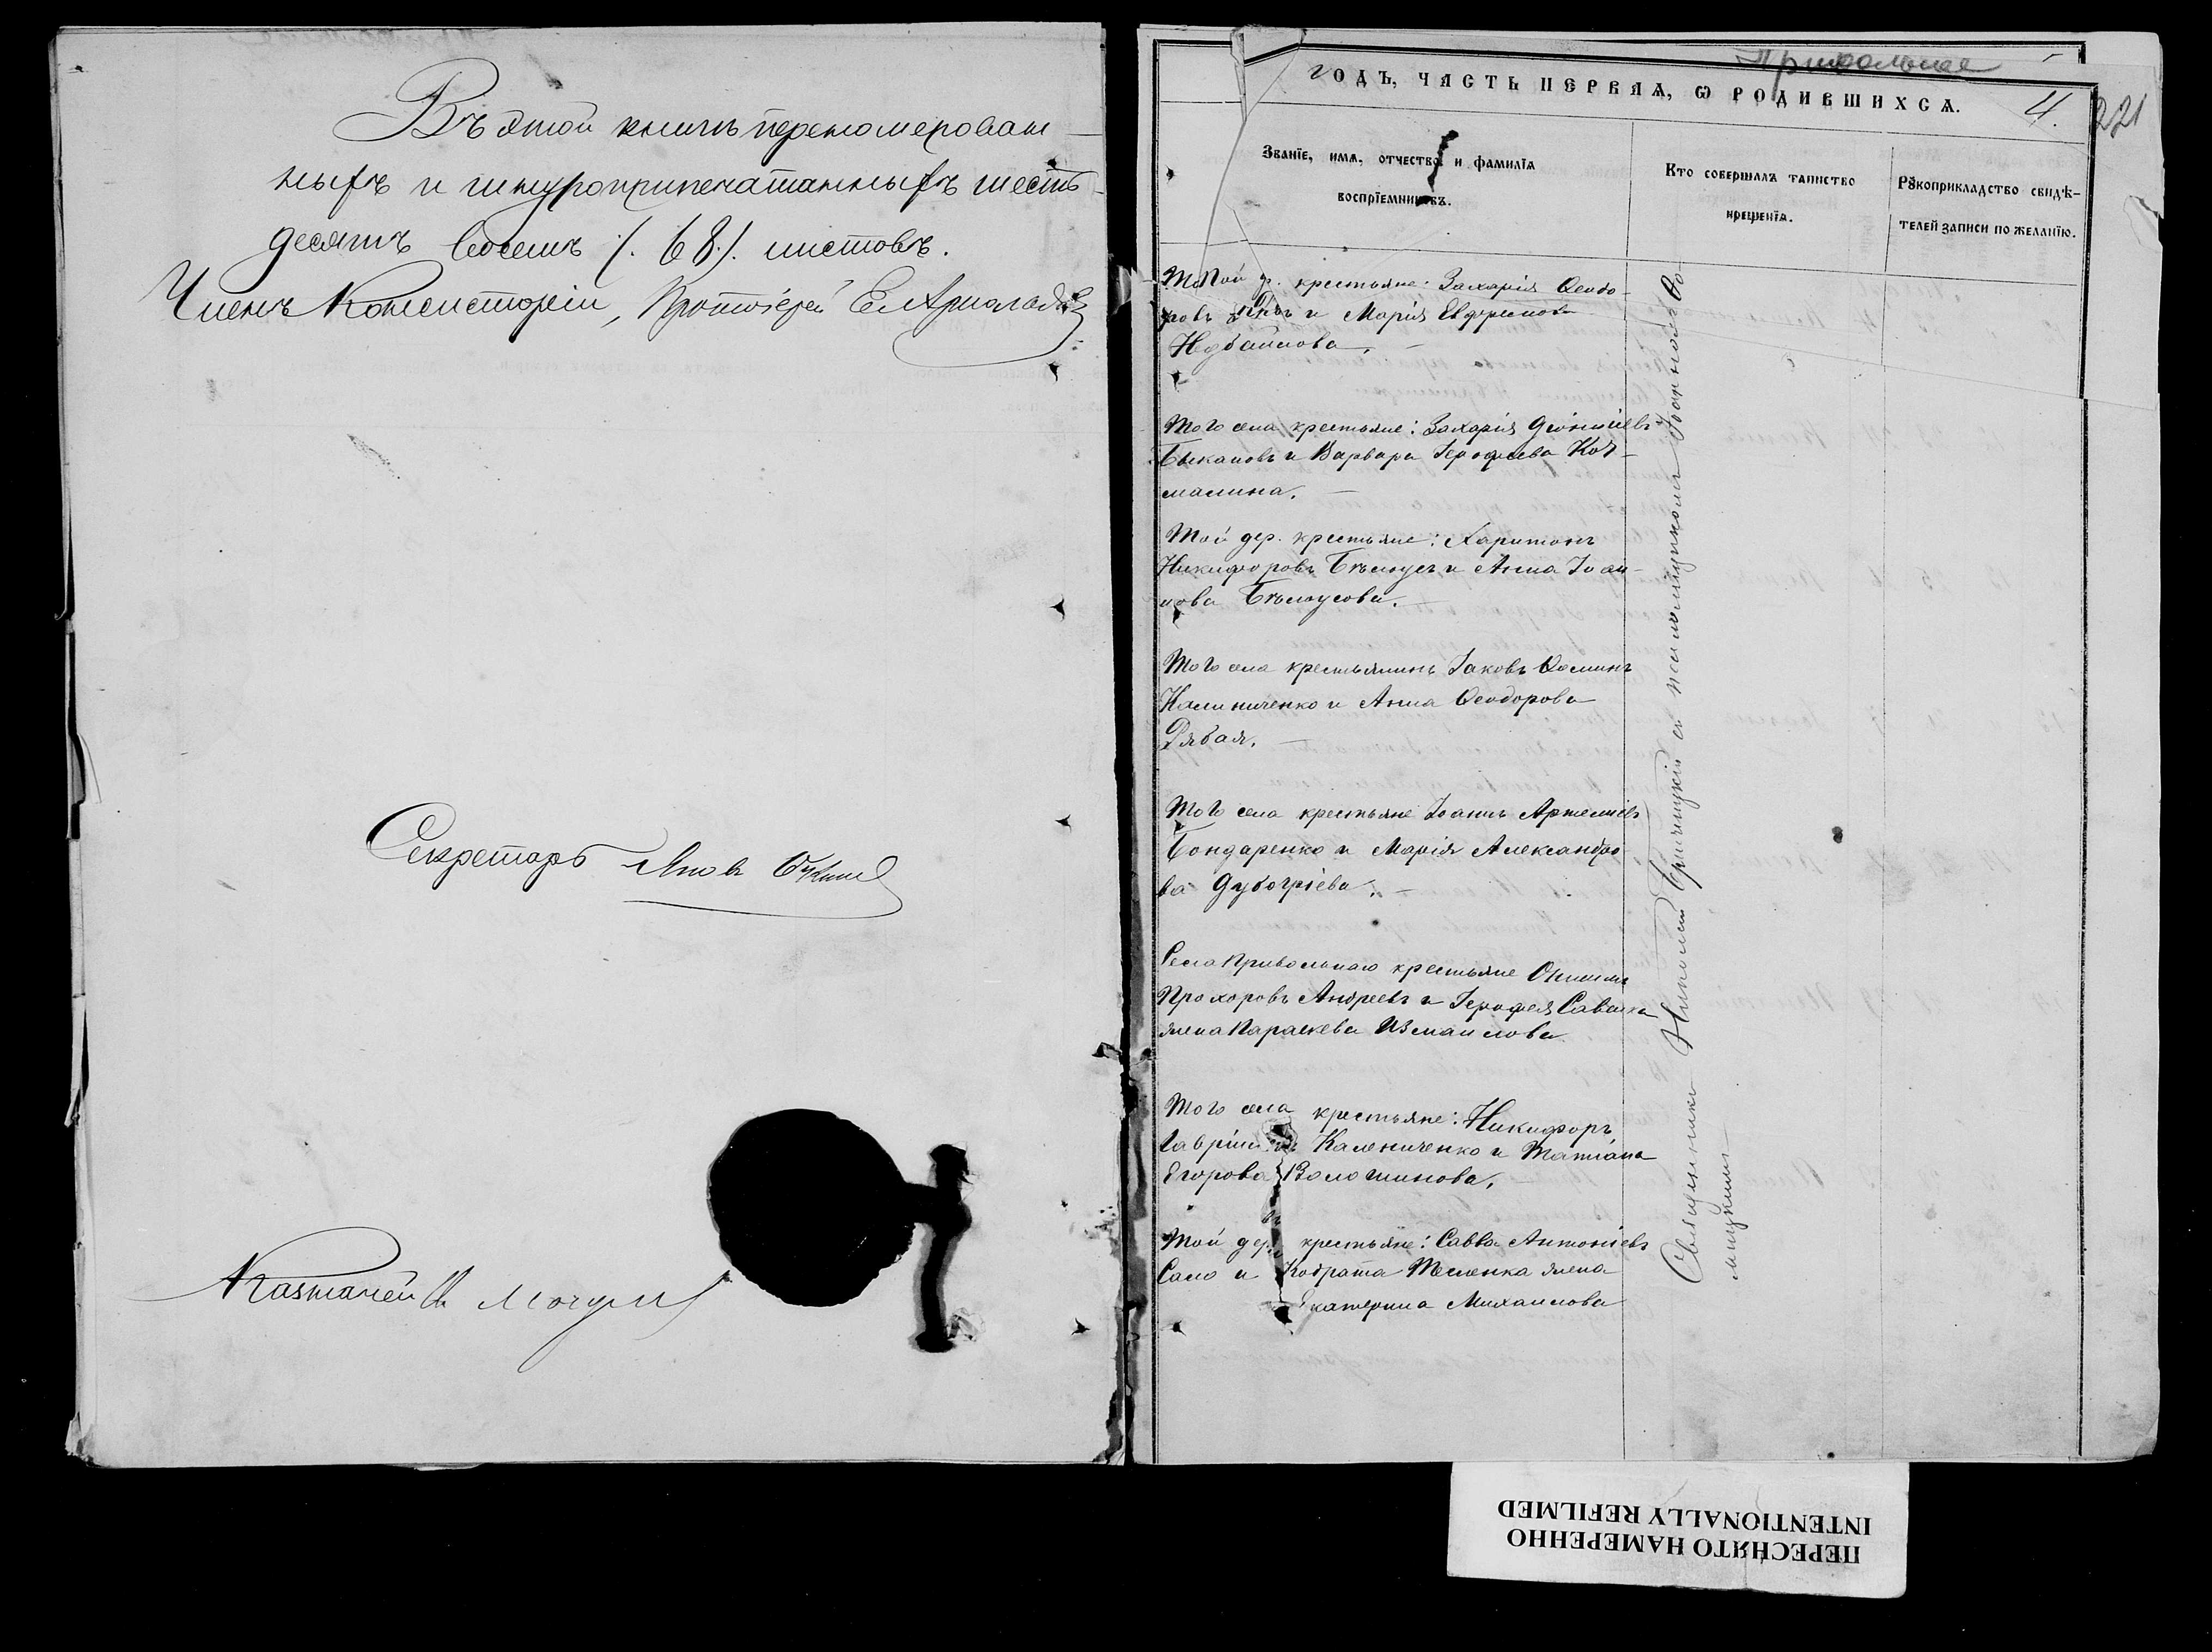 Въ этой книгѣ перенумерован-
ныхъ и шнуроприпечатанныхъ шесть-
десятъ восемь (68) листовъ.
Членъ Консисторіи, Протоіерей
Секретарь
Казначей
Привольное
4.
221
ГОДЪ, ЧАСТЬ ПЕРВАЯ, Ѡ РОДИВШИХСЯ.
Званїе, имя, отчество и фамилїя
воспрїемниковъ.
Кто совершалъ таинство
крещенїя.
Рꙋкоприкладство свидѣ-
телей записи по желанїю.
Той д. крестьяне: Захарія Ѳеодо-
ровъ и Марія Евфремова
Недбайлова.
Того села крестьяне: Захарія Діонисіевъ
Быкановъ и Варвара Іерофеева Кот-
малина.
Той дер. крестьяне: Харитонъ
Никифоровъ Бѣлоусъ и Анна Іоан-
нова Бѣлоусова.
Того села крестьянинъ Іаковъ Ѳоминъ
Калиниченко и Анна Ѳеодорова
Рябая.
Того села крестьяне Іоаннъ Артеміевъ
Бондаренко и Марія Александро
ва Дубогріева.
Села Привольнаго крестьяне Онисимъ
Прохоровъ Андреевъ и Іерофея Савенка
жена Параскева Измаилова
Того села крестьяне: Никифоръ
Гавріиловъ Калениченко и Татіана
Егорова Волошинова.
Той дер. крестьяне: Савва Антоніевъ
Сало и Кодрата Тесленка жена
Екатерина Михаилова
Священникъ Николай съ псаломщикомъ Іоанномъ До-
мицкимъ
ПЕРЕСНЯТО НАМЕРЕННО
INTENTIONALLY REFILMED